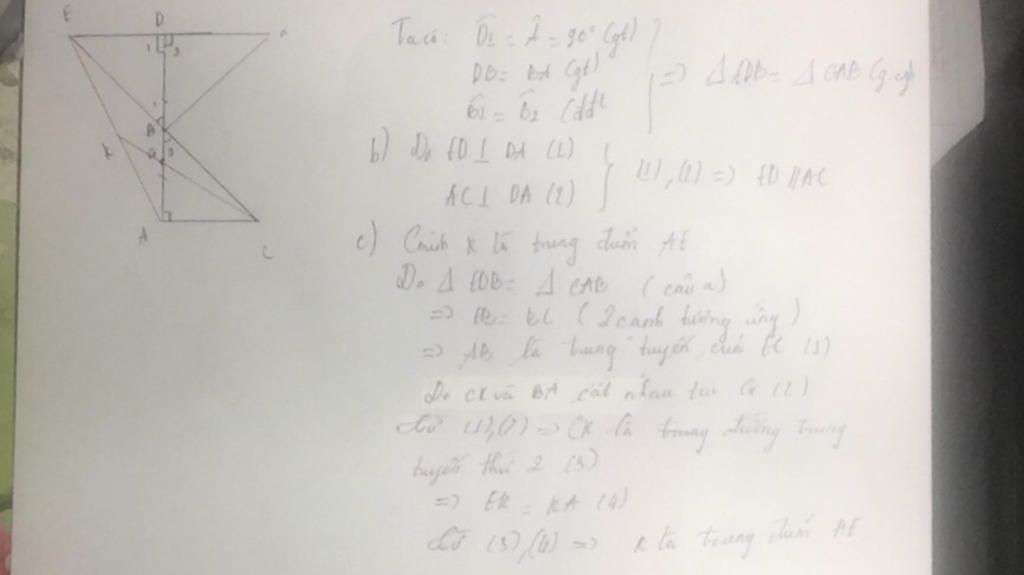 E D
1 2
1
B
K G 2
A C
Ta có: D̂1 = Â = 90° (gt)
DB = BA (gt)
B̂1 = B̂2 (đđ
=> Δ EDB = Δ CAB (g.cg)
b) Do ED ⊥ DA (1)
AC ⊥ DA (2)
(1), (2) => ED // AC
c) Cminh K là trung điểm AE
Do Δ EDB = Δ CAB (câu a)
=> = (2 cạnh tương ứng)
=> AB là trung tuyến của EC (1)
Do CK và BA cắt nhau tại G (2)
Từ (1), (2) => CK là trung đường trung
tuyến thứ 2 (3)
=> EK = KA (4)
Từ (3), (4) => K là trung điểm AE